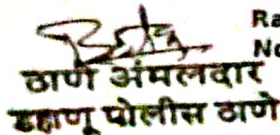 Ra
No
ठाणे अंमलदार
डहाणू पोलीस ठाणे